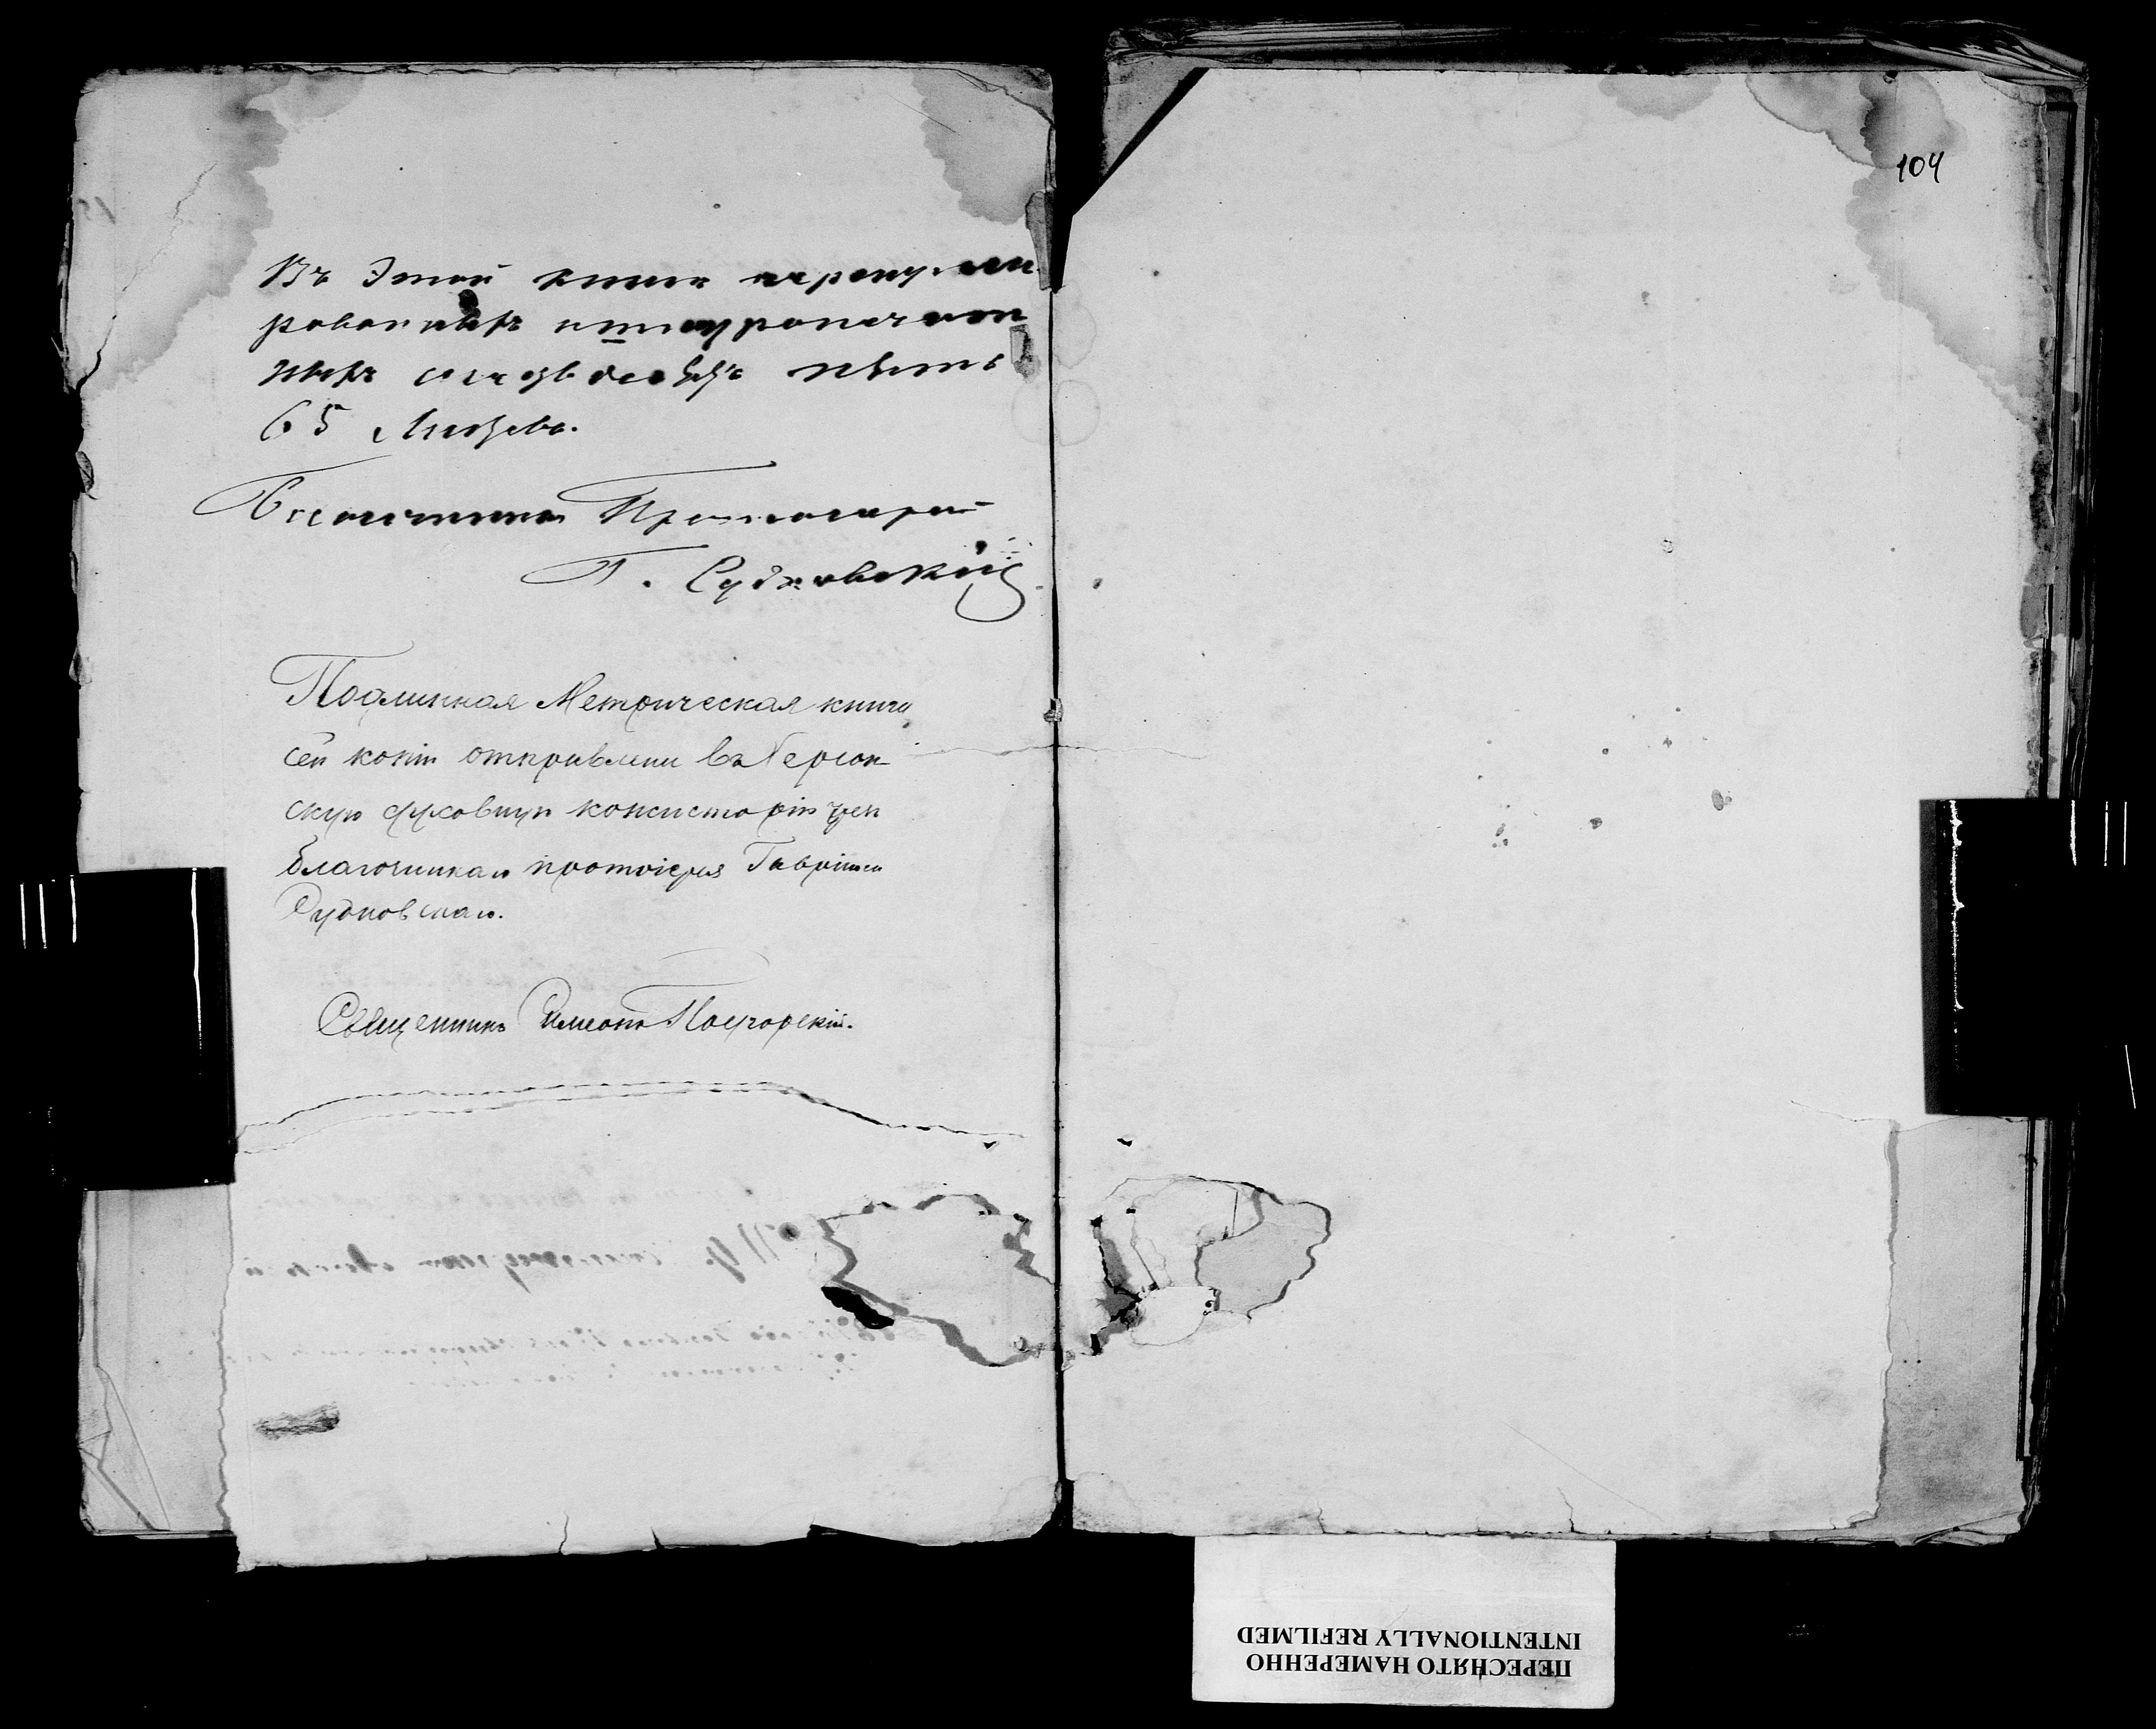 Въ Этой книги перонумеи
рованныхъ и прошнурованныхъ
шестьдесятъ пять
65 Листовъ.
Благочинный Протоіерей
Г. Судковскій
Подлинная Метрическая книга
сей копіи отправлена въ Херсон
скую духовную консисторію чрез
благочиннаго протоіерея Гавріила
Судковскаго.
Священникъ Симеонъ Подгорскій.
104
ПЕРЕСНЯТО НАМЕРЕННО
INTENTIONALLY REFILMED